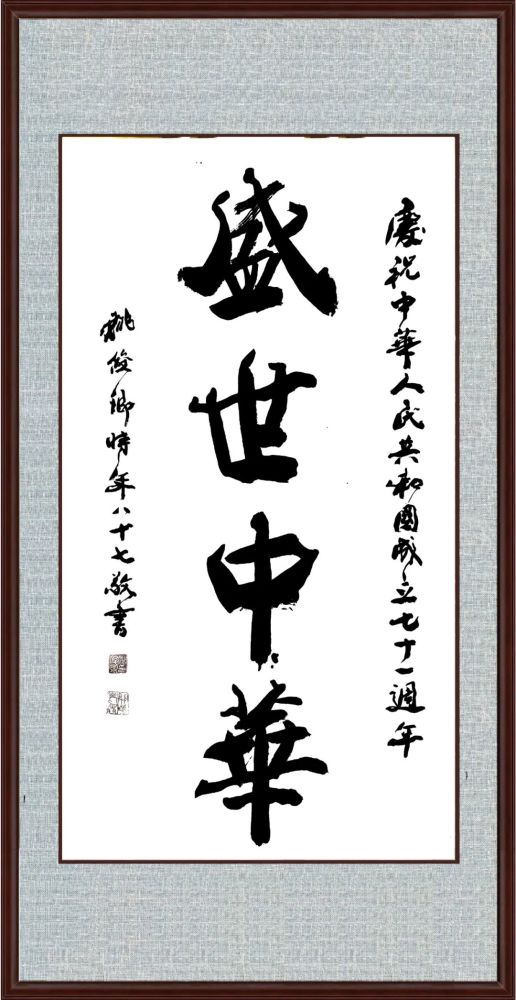 慶祝中華人民共和國成立七十一週年
盛世中華
姚俊卿時年八十七敬書